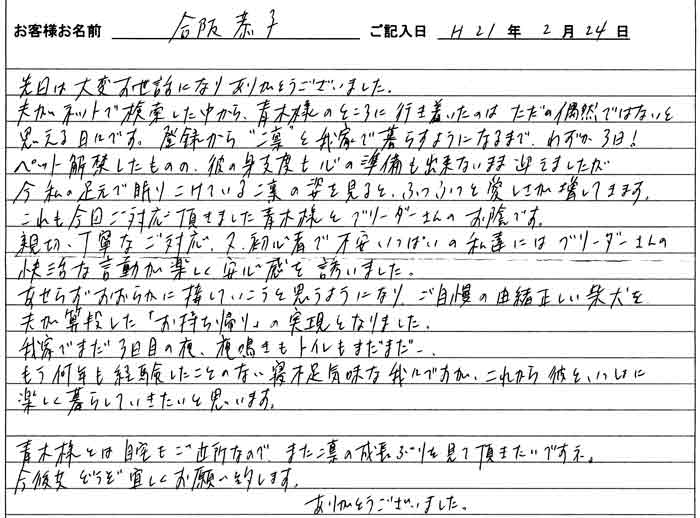 お客様お名前 合阪 恭子 ご記入日 H 21 年 2 月 24 日
先日は大変お世話になりありがとうございました。
夫がネットで検索した中から、青木様のところに行き着いたのは ただの偶然ではないと
思える日々です。登録から"二凛"を我家で暮らすようになるまで、わずか3日!
ペット解禁したものの、彼の身支度も心の準備も出来ないまま迎えましたが
今私の足元で眠りこけている二凛の姿を見ると、ふつふつと愛しさが増してきます。
これも今回ご対応頂きました青木様とブリーダーさんのお陰です。
親切、丁寧なご対応、又、初心者で不安いっぱいの私達にはブリーダーさんの
快活な言動が楽しく安心感を誘いました。
あせらずおおらかに接していこうと思うようになり、ご自慢の由緒正しい柴犬を
夫が算段した「お持ち帰り」の実現となりました。
我家でまだ3日目の夜、夜鳴きもトイレもまだまだ…
もう何年も経験したことのない寝不足気味な我々ですが、これから彼といっしょに
楽しく暮らしていきたいと思います。
青木様とは自宅もご近所なので またニ凛の成長ぶりを見て頂きたいですネ。
今後共 どうぞ宜しくお願い致します。
ありがとうございました。